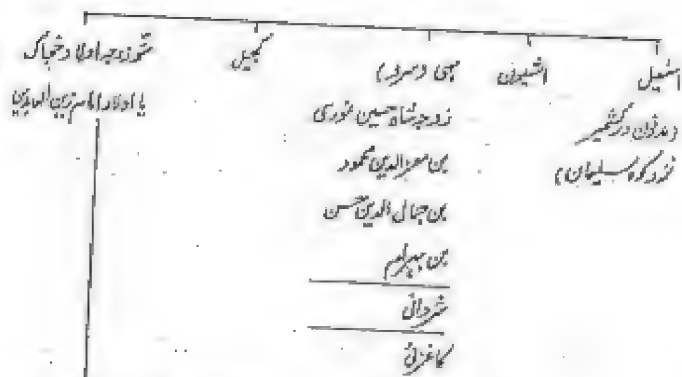 اسمٰعیل
(مدفون در کشمیر
نزد کوہ سلیمان)
اشیون
بی بی (سرور)
زوجہ شاہ حسین غوری
بن معزالدین محمود
بن جمال الدین حسن
بن بہرام
شروانی
کجیل
زوجہ اولاد ضحاک
یا اولاد امام زین العابدین